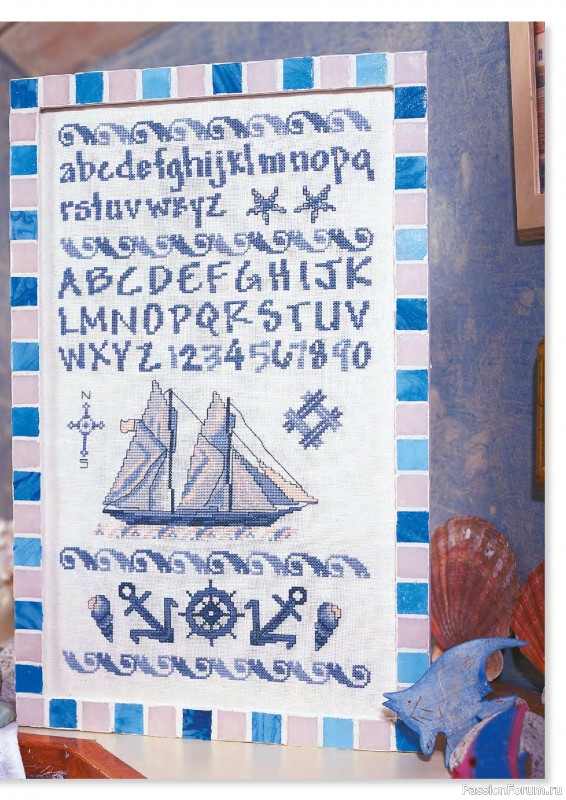 abcdefghijklmnopq
rstuvwxyz
ABCDEFGHIJK
LMNOPQRSTUV
WXYZ 1234567890
N
S
PassionForum.ru